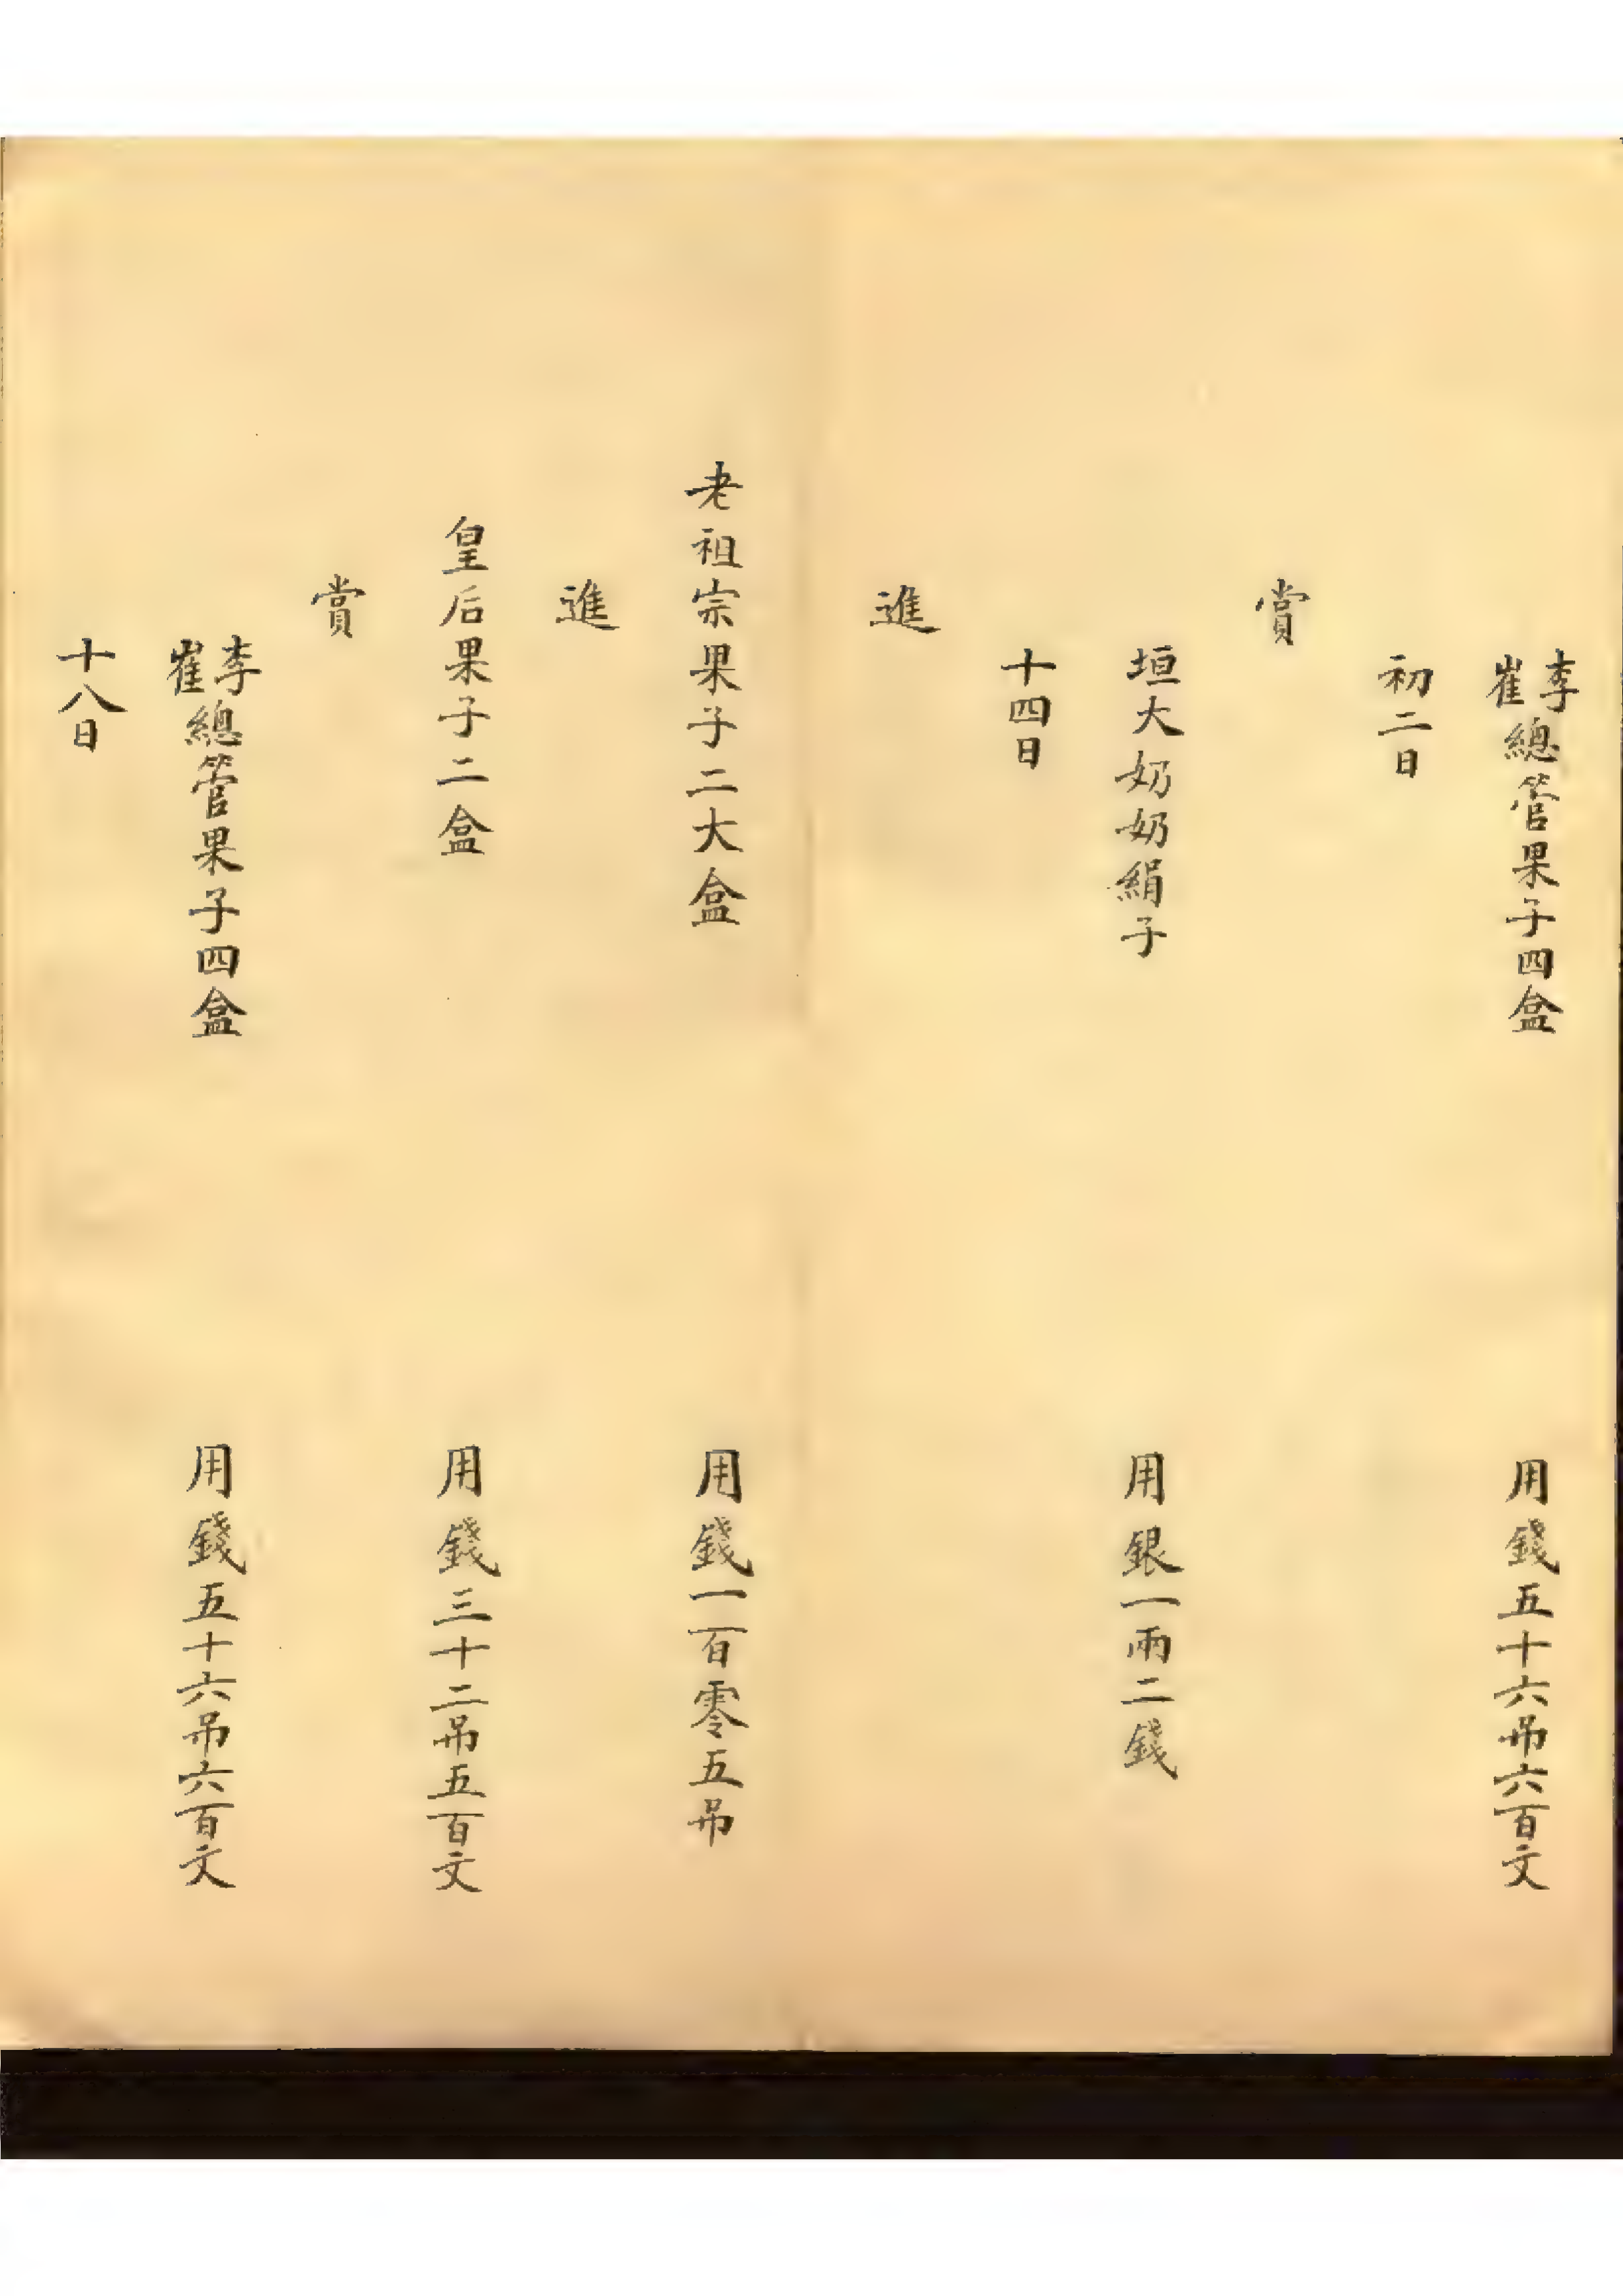 李崔總管果子四盒　用錢五十六吊六百文
初二日
賞
垣大奶奶絹子　用銀一兩二錢
十四日
進
老祖宗果子二大盒　用錢一百零五吊
進
皇后果子二盒　用錢三十二吊五百文
賞
李崔總管果子四盒　用錢五十六吊六百文
十八日